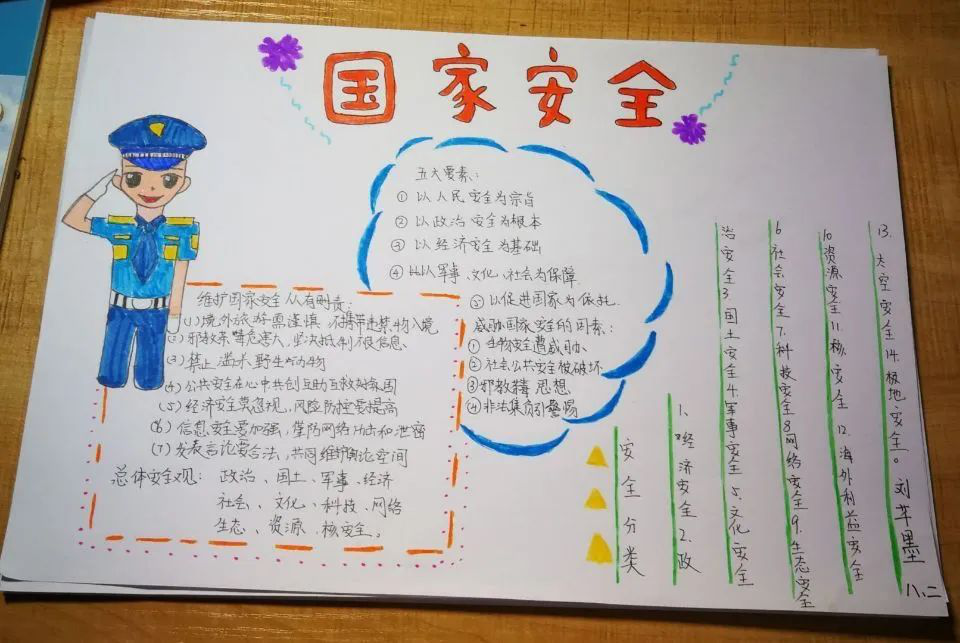 国家安全
五大要素:
① 以人民安全为宗旨
② 以政治安全为根本
③ 以经济安全为基础
④ 以军事、文化、社会为保障
⑤ 以促进国家为依托
威胁国家安全的因素:
① 生物安全遭威胁、
② 社会公共安全被破坏
③ 邪教毒思想
④ 非法集资引警惕
维护国家安全人有则责:
(1) 境外旅游需谨慎,不携带违禁物入境
(2) 邪教危害大,坚决抵制不良信息、
(3) 禁止滥杀野生动物
(4) 公共安全在心中共创互助互救好
(5) 经济安全莫忽视,风险防控要提高
(6) 信息安全要加强,谨防网络攻击和泄密
(7) 发表言论要合法,共同维护舆论空间
总体安全观: 政治、国土、军事、经济
社会、文化、科技、网络
生态、资源、核安全。
安全分类
1.经济安全2.政
治安全3.国土安全4.军事安全5.文化安全
6社会安全7.科技安全8网络安全9.生态安全
10资源安全11.核安全12.海外利益安全
13.太空安全14.极地安全。
八、二